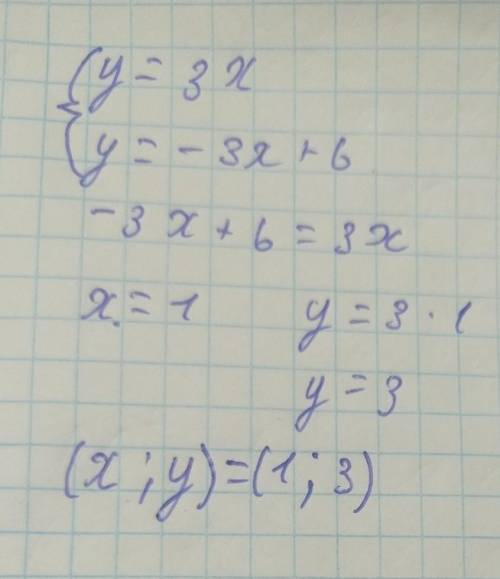 {y = 3x
y = -3x + 6
-3x + 6 = 3x
x = 1    y = 3 · 1
y = 3
(x ; y) = (1 ; 3)